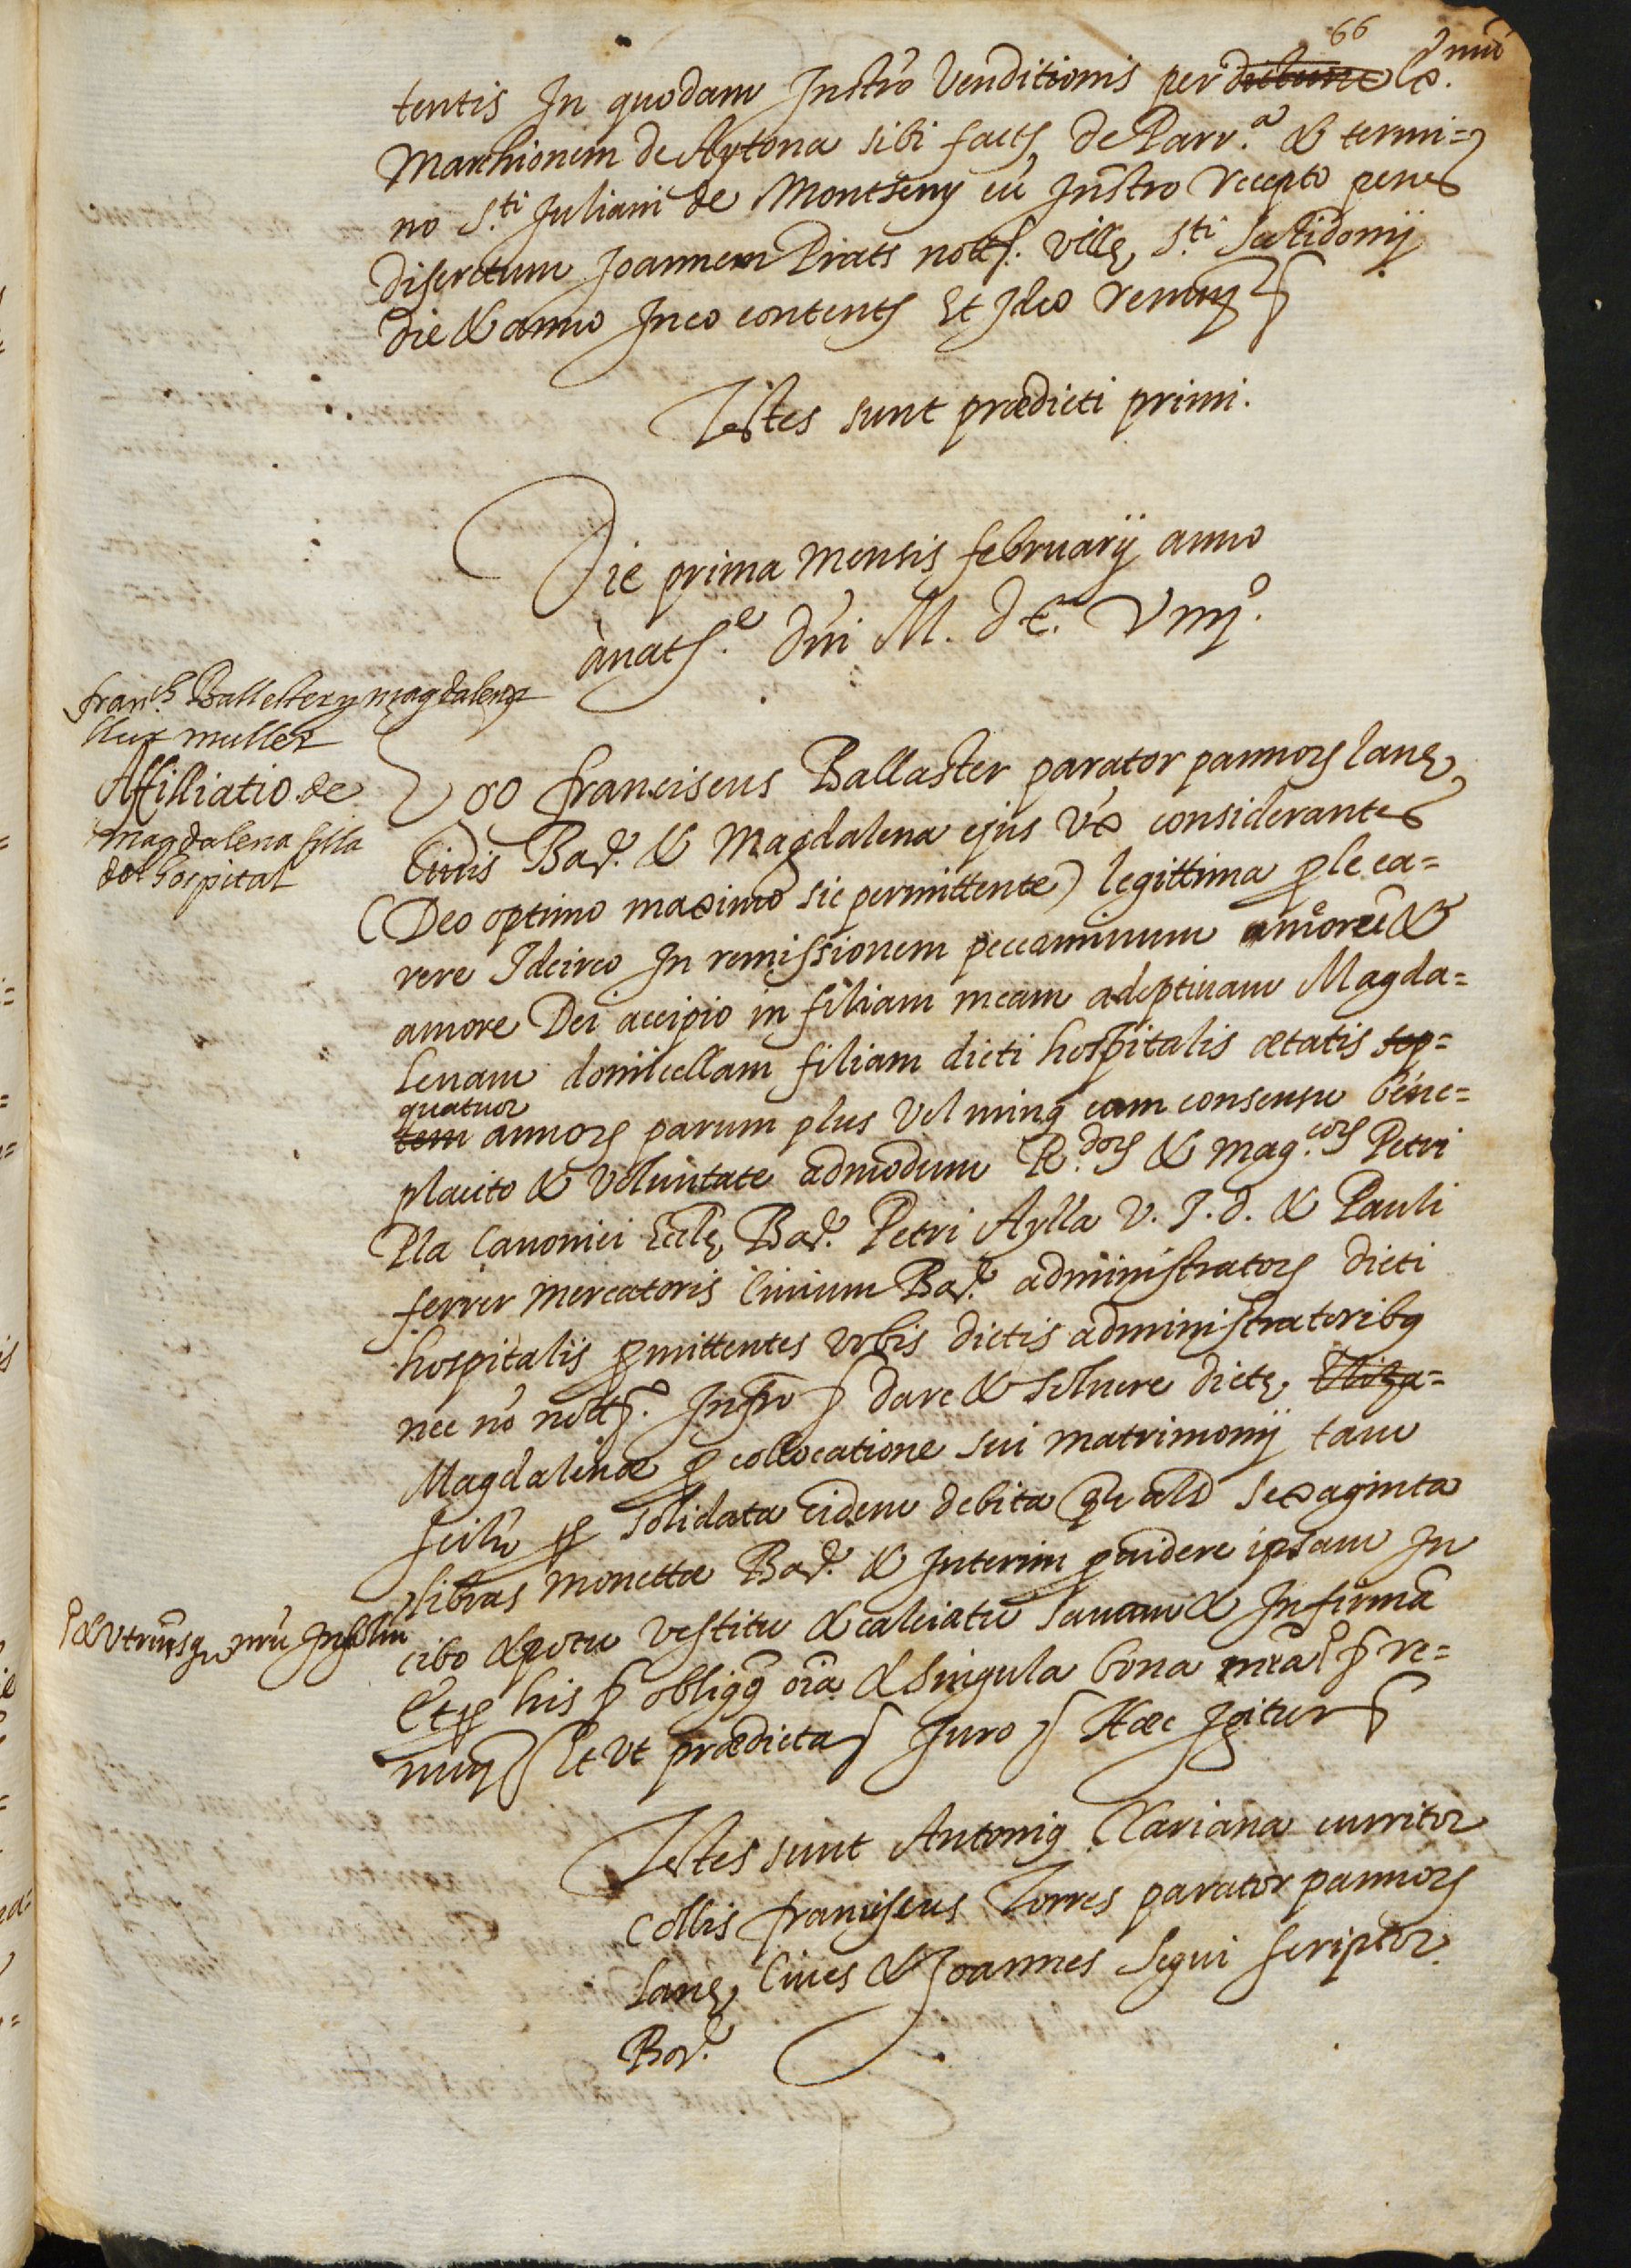 66
tentis In quodam Instro Venditionis per dictum Ex.mu
Marchionem de Aytona sibi fact. de Parr.a & termi=
no S.ti Juliani de Montseny cu Instro recepto penes
discretum Joannem Prats not. Ville S.ti Seelidonij
die & anno In eo content. Et Ideo renun.
Testes sunt prædicti primi.
Die prima mensis februarij anno
à nat.e Dni M. DC. Viiij.o
fran.ch Ballester y magdalena
sua muller
Affilliatio de
magdalena filla
del hospital
Ego franciscus Ballaster parator pannor. lanę
Ciuis Bar. & Magdalena ejus vx considerantes
(Deo optimo maximo sic permittente) legittima ple ca=
rere Idcirco In remissionem peccaminum
amore Dei accipio in filiam meam adoptiuam Magda=
lenam domicellam filiam dicti hospitalis ætatis sep=
quatuor
tem annor. parum plus vel minus cum consensu bene=
placito & voluntate admodum R.dor. & Mag.cor. Petri
Pla Canonici Eccle Bar. Petri Aylla V. J. d. & Pauli
ferrer mercatoris Ciuium Bar. administrator. dicti
hospitalis pmittentes vobis dictis administratoribus
nec no not. Infro dare & soluere dictę
Magdalenæ p collocatione sui matrimonij tam
scilt p solidata eidem debita qua als sexaginta
libras monettæ Bar. & Interim puidere ipsam In
cibo & potu vestitu & calciatu sanam & Infirma
& utriusq nru Insolm
Et p his obligo oia & singula bona mea re=
nun. Et vt prædicta Juro Hæc Igitur
Testes sunt Antonius Clariana curritor
Collis franciscus Torres parator pannor.
lanę Ciues & Joannes Segui scriptor
Bar.